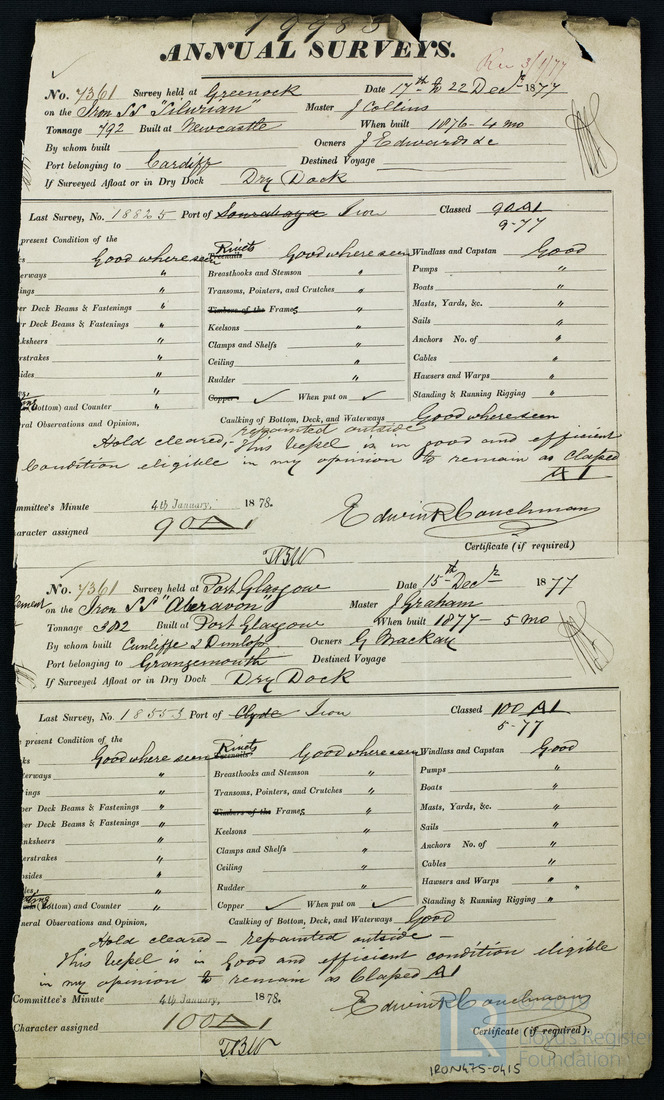 19983
ANNUAL SURVEYS.
Rec 3/1/77
No. 7361 Survey held at Greenock Date 17th & 22 Decr 1877
on the Iron SS "Silurian" Master J Collins
Tonnage 792 Built at Newcastle When built 1876 - 4 mo
By whom built Owners J Edwards &c
Port belonging to Cardiff Destined Voyage
If Surveyed Afloat or in Dry Dock Dry Dock
Last Survey, No. 18825 Port of Sourabaya Iron Classed 90A1
9-77
present Condition of the
Good where seen Rivets Treenails Good where seen Windlass and Capstan Good
erways " Breasthooks and Stemson " Pumps "
ings " Transoms, Pointers, and Crutches " Boats "
er Deck Beams & Fastenings " Timbers of the Frames " Masts, Yards, &c. "
er Deck Beams & Fastenings " Keelsons " Sails "
ksheers " Clamps and Shelfs " Anchors No. of "
rstrakes " Ceiling " Cables "
sides " Rudder " Hawsers and Warps "
(Bottom) and Counter " Copper ✓ When put on ✓ Standing & Running Rigging "
ral Observations and Opinion, Caulking of Bottom, Deck, and Waterways Good where seen
Hold cleared, repainted outside This Vessel is in good and efficient
Condition eligible in my opinion to remain as Classed
A1
mmittee's Minute 4th January, 1878.
haracter assigned 90A1 Edwin R Couchman
Certificate (if required)
TBW
No. 7361 Survey held at Port Glasgow Date 15th Decr 1877
on the Iron SS "Aberavon" Master J Graham
Tonnage 382 Built at Port Glasgow When built 1877 - 5 mo
By whom built Cunliffe & Dunlop Owners G Mackay
Port belonging to Grangemouth Destined Voyage
If Surveyed Afloat or in Dry Dock Dry Dock
Last Survey, No. 18553 Port of Clyde Iron Classed 100A1
5-77
present Condition of the
Good where seen Rivets Treenails Good where seen Windlass and Capstan Good
terways " Breasthooks and Stemson " Pumps "
ings " Transoms, Pointers, and Crutches " Boats "
per Deck Beams & Fastenings " Timbers of the Frames " Masts, Yards, &c. "
er Deck Beams & Fastenings " Keelsons " Sails "
nksheers " Clamps and Shelfs " Anchors No. of "
erstrakes " Ceiling " Cables "
psides " Rudder " Hawsers and Warps "
(Bottom) and Counter " Copper ✓ When put on ✓ Standing & Running Rigging "
neral Observations and Opinion, Caulking of Bottom, Deck, and Waterways Good
Hold cleared - repainted outside
This Vessel is in good and efficient condition eligible
in my opinion to remain as Classed A1
Committee's Minute 4th January, 1878. Edwin R Couchman
Character assigned 100A1 Certificate (if required).
TBW
LR
Lloyd's Register
Foundation
IRON475-0415